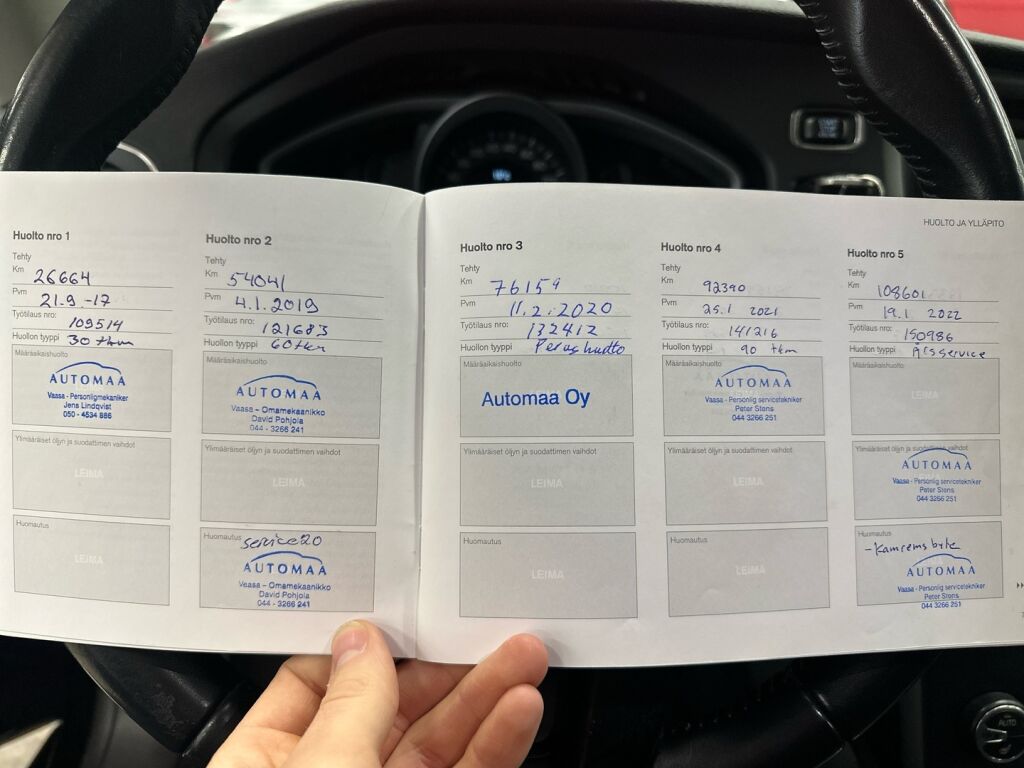 HUOLTO JA YLLÄPITO
Huolto nro 1
Tehty
Km 26664
Pvm 21.9.-17
Työtilaus nro: 109514
Huollon tyyppi 30 tkm
Määräaikaishuolto
AUTOMAA
Vaasa - Personligmekaniker
Jens Lindqvist
050 - 4534 886
Ylimääräiset öljyn ja suodattimen vaihdot
LEIMA
Huomautus
LEIMA
Huolto nro 2
Tehty
Km 54041
Pvm 4.1.2019
Työtilaus nro: 121683
Huollon tyyppi 60tkm
Määräaikaishuolto
AUTOMAA
Vaasa - Omamekaanikko
David Pohjola
044 - 3266 241
Ylimääräiset öljyn ja suodattimen vaihdot
LEIMA
Huomautus service20
AUTOMAA
Vaasa - Omamekaanikko
David Pohjola
044 - 3266 241
Huolto nro 3
Tehty
Km 76159
Pvm 11.2.2020
Työtilaus nro: 132412
Huollon tyyppi Perushuolto
Määräaikaishuolto
Automaa Oy
Ylimääräiset öljyn ja suodattimen vaihdot
LEIMA
Huomautus
LEIMA
Huolto nro 4
Tehty
Km 92390
Pvm 25.1 2021
Työtilaus nro: 141216
Huollon tyyppi 90 tkm
Määräaikaishuolto
AUTOMAA
Vaasa - Personlig servicetekniker
Peter Stens
044 3266 251
Ylimääräiset öljyn ja suodattimen vaihdot
LEIMA
Huomautus
LEIMA
Huolto nro 5
Tehty
Km 108601
Pvm 19.1 2022
Työtilaus nro: 150986
Huollon tyyppi Årsservice
Määräaikaishuolto
LEIMA
Ylimääräiset öljyn ja suodattimen vaihdot
AUTOMAA
Vaasa - Personlig servicetekniker
Peter Stens
044 3266 251
Huomautus
-Kamremsbyte
AUTOMAA
Vaasa - Personlig servicetekniker
Peter Stens
044 3266 251
AUTO